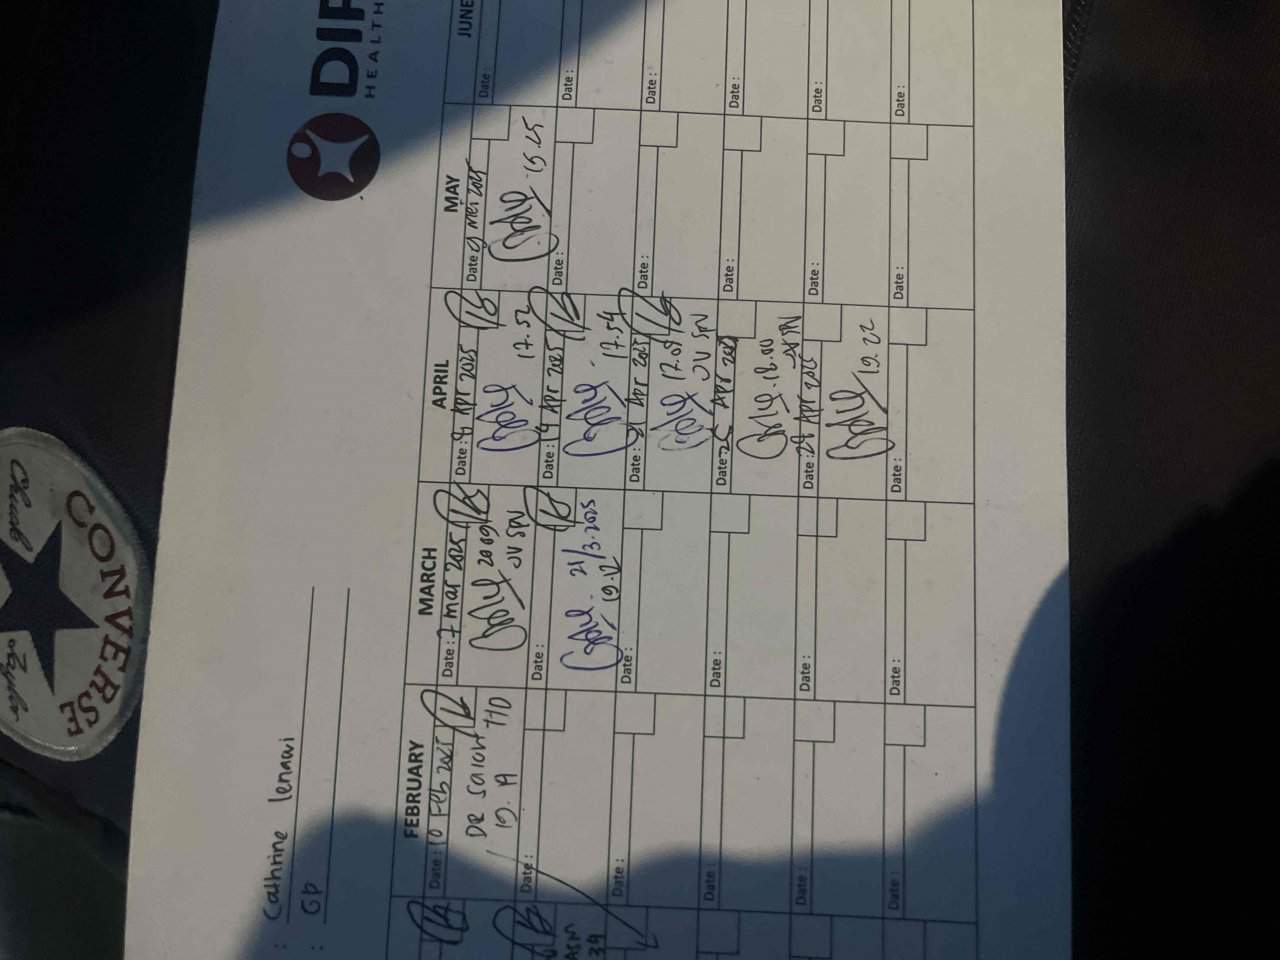 DIR
HEALTH
: Cathrine lenawi
: GP
FEBRUARY
MARCH
APRIL
MAY
JUNE
Date : 10 Feb 2025
Date : 7 mar 2025
Date : 8 Apr 2025
Date : 9 mei 2025
Date :
DR
TTD
19. 19
2009
JV SPV
17.52
15.25
Date :
Date :
Date : 14 Apr 2025
Date :
Date :
ASM
39
21/3.2025
19.12
17.54
Date :
Date :
Date : 21 Apr 2025
Date :
Date :
17.09
JV SPV
Date :
Date :
Date : 25 Apr 2025
Date :
Date :
18.00
JV SPV
Date :
Date :
Date : 28 Apr 2025
Date :
Date :
19.22
Date :
Date :
Date :
Date :
Date :
CONVERSE
Chuck
Taylor